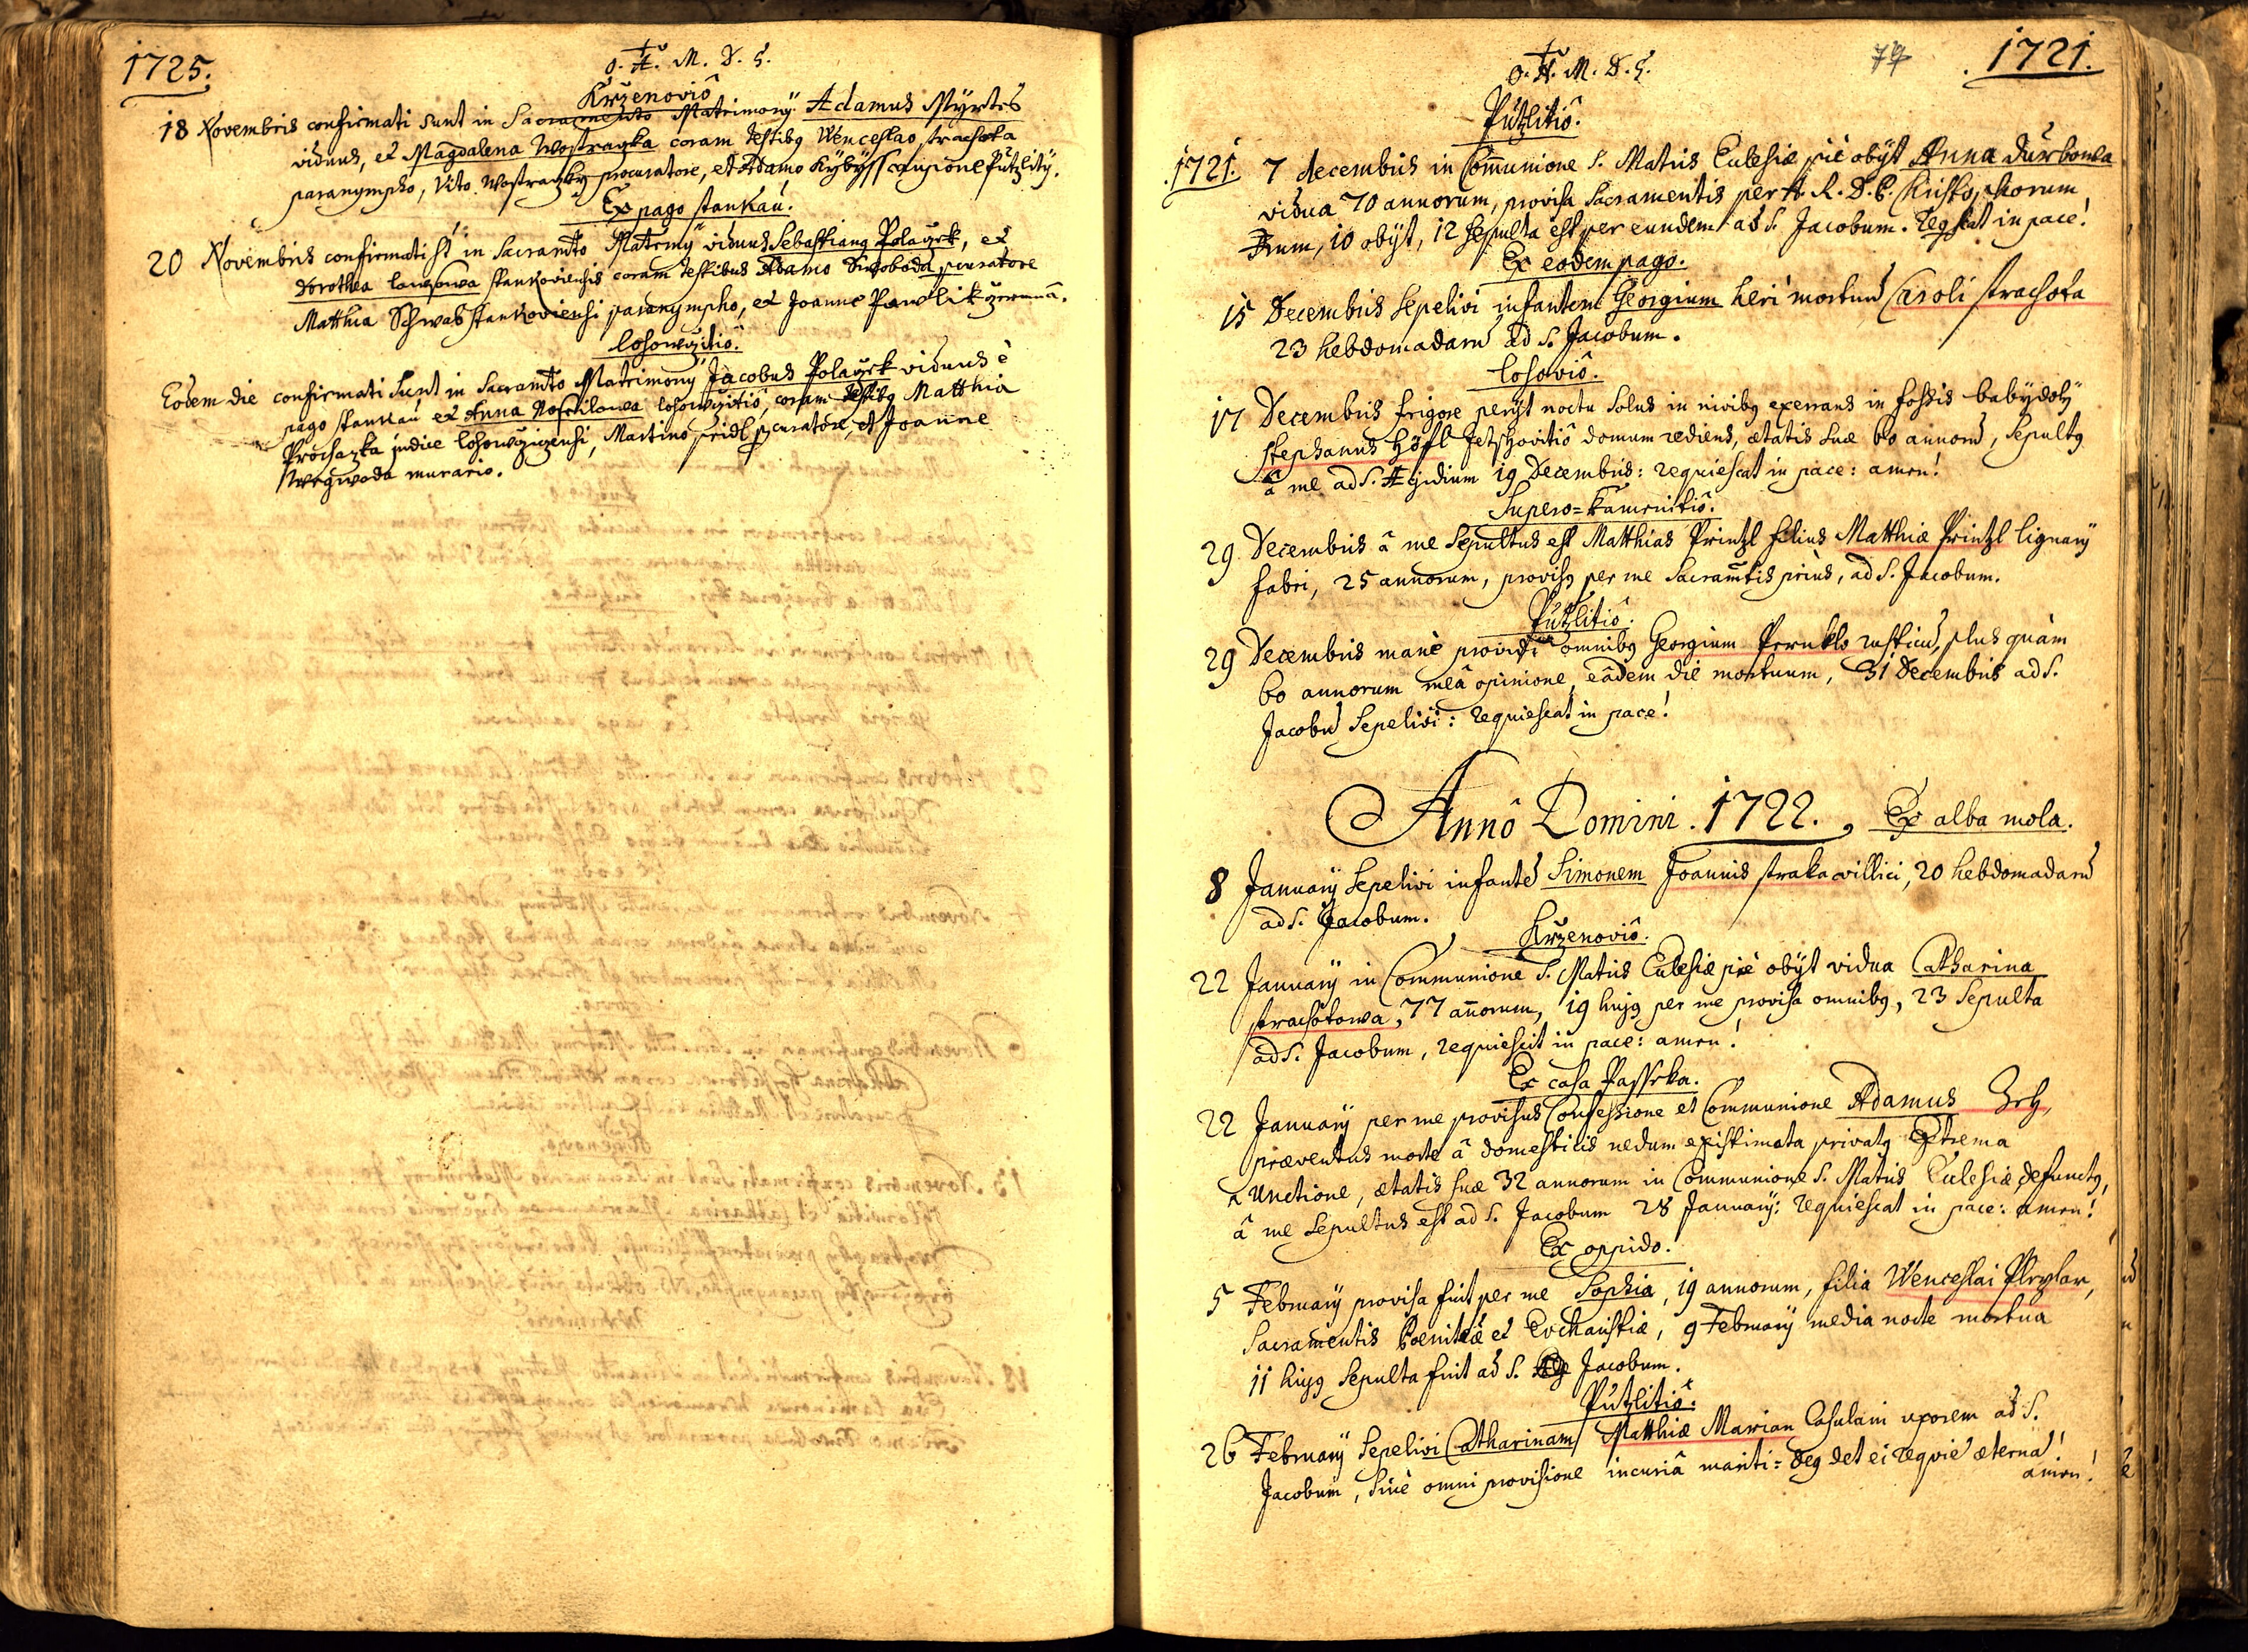 1725.
O. A. M. D. G.
Krženoviô
18 Novembris confirmati sunt in Sacramento Matrimonÿ Adamus Myrtes
viduus, et Magdalena Wostrazka coram testibq Wenceslao strachota
paranympho, Vito Wostrazky procuratore, et Adamo Kybyss Pützlitÿ.
Ex pago stankau.
20 Novembris confirmati st in Sacramto Matrimÿ viduus Sebastianq Polaczek, et
Dorothea stankoviensis coram testibus Adamo Swoboda pcuratore
Matthia Schwab stankoviensi paranympho, et Joanne Pawlik
losowzitiô.
Eodem die confirmati sunt in Sacramto Matrimonÿ Jacobus Polaczek viduus è
pago stankau et Anna losowzitiô, coram testibq Matthia
Prochazka judice losowziczensi, Martino pcuratore, et Joanne
murario.
O. A. M. D. G.
77
1721.
Pützlitiô.
1721. 7 decembris in Comunione S. Matris Eclesiæ piè obÿt Anna Durbowa
vidua 70 annorum, provisa Sacramentis per A. R. D. P. Christophorum
10 obÿt, 12 sepulta est per eundem ad S. Jacobum. Reqscat in pace!
Ex eodem pago.
15 Decembris sepelivi infantem Georgium heri mortuu Caroli strachota
23 hebdomadaru ad S. Jacobum.
losoviô.
17 Decembris frigore perÿt noctu solus in nivibq exerrans in fossis babÿdolÿ
stephanus Höfl domum rediens, ætatis suæ 60 annoru, sepultq
â me ad S. Ægidium 19 Decembris: requiescat in pace: amen!
Supero=Kamenitiô.
29 Decembris â me sepultus est Matthias Printzl filius Matthiæ Printzl lignarÿ
fabri, 25 annorum, provisq per me Sacramtis priùs, ad S. Jacobum.
Pützlitiô.
29 Decembris manè providi omnibq Georgium Pernklo rusticu, plus quàm
60 annorum meâ opinione, eâdem die mortuum, 31 Decembris ad S.
Jacobu sepelivi: requiescat in pace!
Annô Domini. 1722. , Ex alba mola.
8 Januarÿ sepelivi infante Simonem Joannis straka villici, 20 hebdomadaru
ad S. Jacobum.
Krženoviô.
22 Januarÿ in Communione S. Matris Eclesiæ piè obÿt vidua Catharina
strachotowa, 77 anorum, 19 hujq per me provisa omnibq, 23 sepulta
ad S. Jacobum, requiescit in pace: amen!
Ex casa Passeka.
22 Januarÿ per me provisus Confessione et Communione Adamus
præventus morte â domesticis nedum existimata privatq Extrema
Unctione, ætatis suæ 32 annorum in Communione S. Matris Eclesiæ defunctq,
â me sepultus est ad S. Jacobum 28 Januarÿ: requiescat in pace: amen!
Ex oppido.
5 Februarÿ provisa fuit per me Sophia, 19 annorum, filia Wenceslai
Sacramentis Poenitæ et Evcharistiæ, 9 Februarÿ media nocte mortua
11 hujq sepulta fuit ad S. Jacobum.
Pützlitiô.
26 Februarÿ sepelivi Catharinam Matthiæ Marian Casulani uxorem ad S.
Jacobum, sine omni provisione incuriâ mariti: Deq det ei requie æterna!
amen!